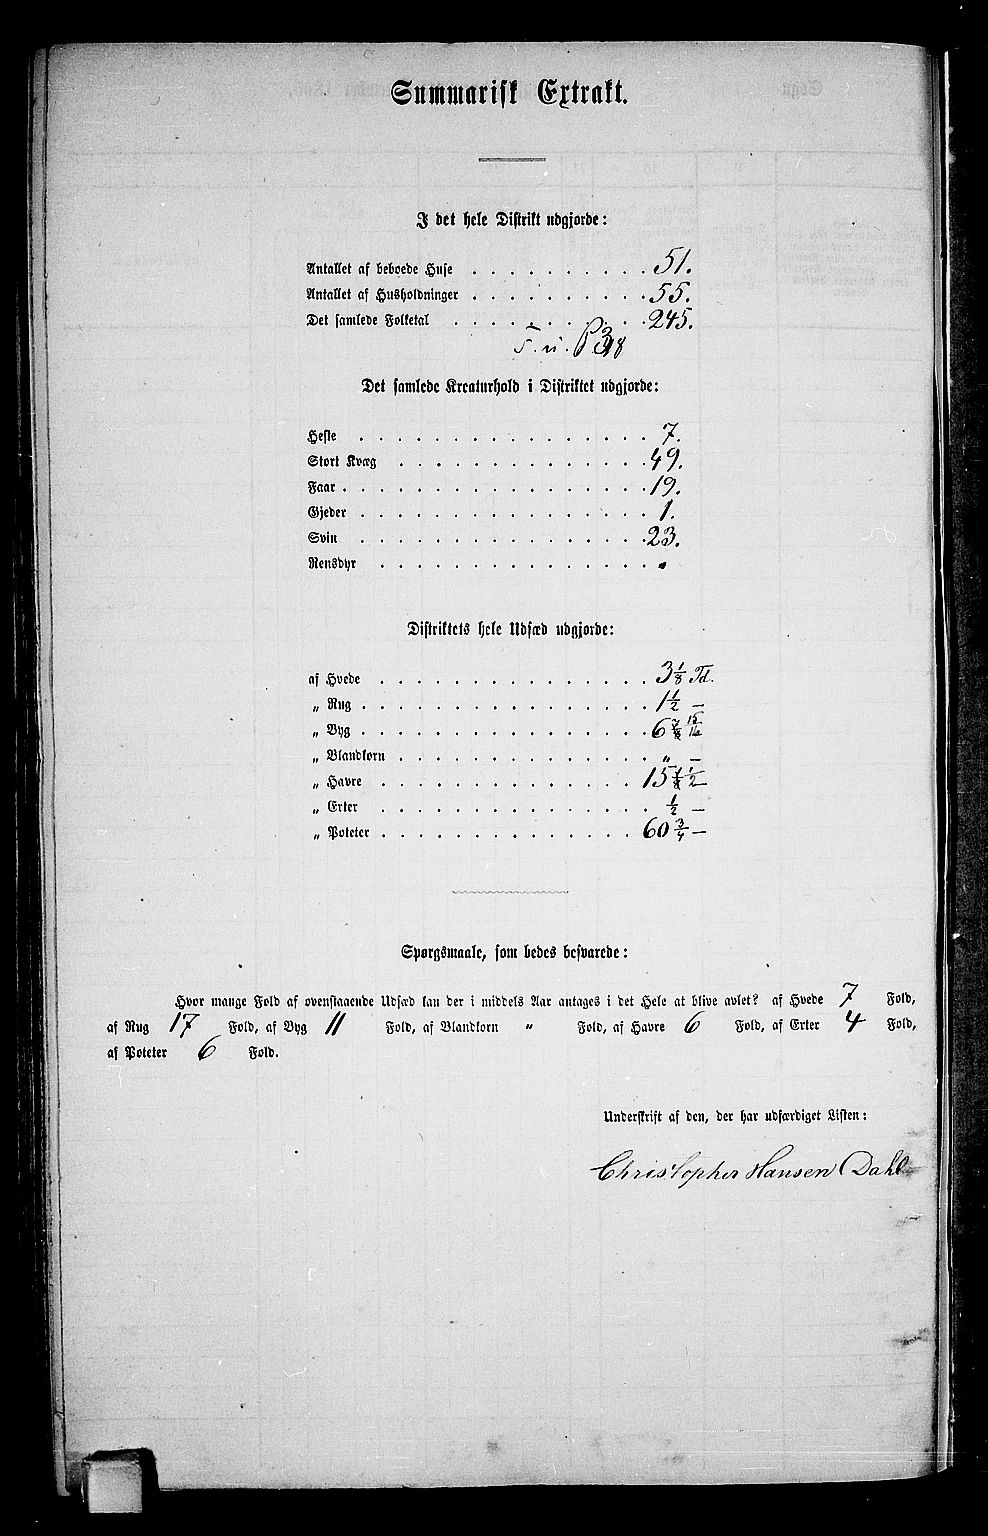 Summarisk Extrakt.
I det hele Distrikt udgjorde:
Antallet af beboede Huse . . . . . . . . . . 51.
Antallet af Husholdninger . . . . . . . . . . 55.
Det samlede Folketal . . . . . . . . . . . 245.
Det samlede Kreaturhold i Distriktet udgjorde:
Heste . . . . . . . . . . . . . . . . 7.
Stort Kvæg . . . . . . . . . . . . . . 49.
Faar . . . . . . . . . . . . . . . . . 19.
Gjeder . . . . . . . . . . . . . . . . 1.
Svin . . . . . . . . . . . . . . . . 23.
Rensdyr . . . . . . . . . . . . . . .
Distriktets hele Udsæd udgjorde:
af Hvede . . . . . . . . . . . . . . . 3 1/8 Td.
„ Rug . . . . . . . . . . . . . . . . 1 1/2 —
„ Byg . . . . . . . . . . . . . . . . 6 7/8 15/16
„ Blandkorn . . . . . . . . . . . . . . „ —
„ Havre . . . . . . . . . . . . . . . 15 1/2
„ Erter . . . . . . . . . . . . . . . 1/2 —
„ Poteter . . . . . . . . . . . . . . 60 3/4 —
Spørgsmaale, som bedes besvarede:
Hvor mange Fold af ovenstaaende Udsæd kan der i middels Aar antages i det Hele at blive avlet? af Hvede 7 Fold,
af Rug 17 Fold, af Byg 11 Fold, af Blandkorn „ Fold, af Havre 6 Fold, af Erter 4 Fold,
af Poteter 6 Fold.
Underskrift af den, der har udfærdiget Listen:
Christopher Hansen Dahl